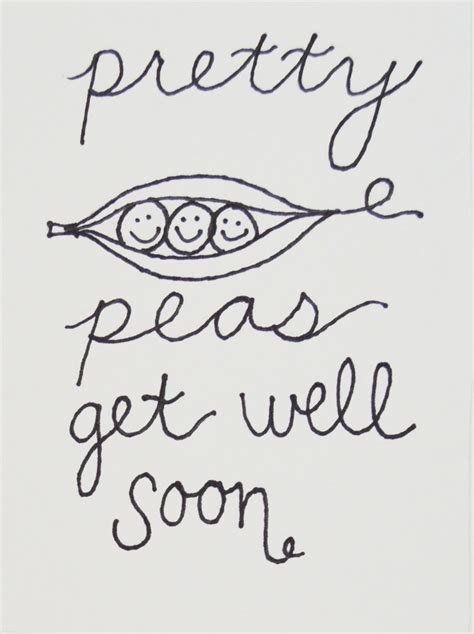 pretty
peas
get well
soon